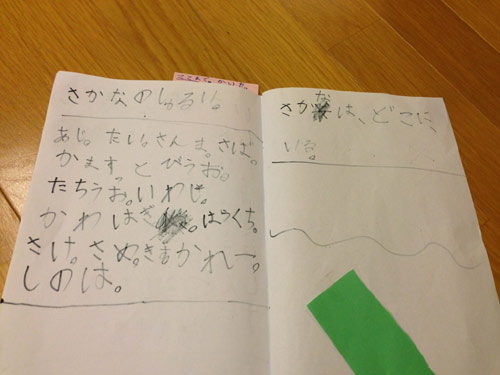 ここまで。かいた。
さかなのしゅるい。
あじ。たい。さんま。さば。
かます。とびうお。
たちうお。いわし。
かわはぎ。はうくち。
さけ。さぬ。きむかれー。
しのは。
さかなは、どこに、
いる。